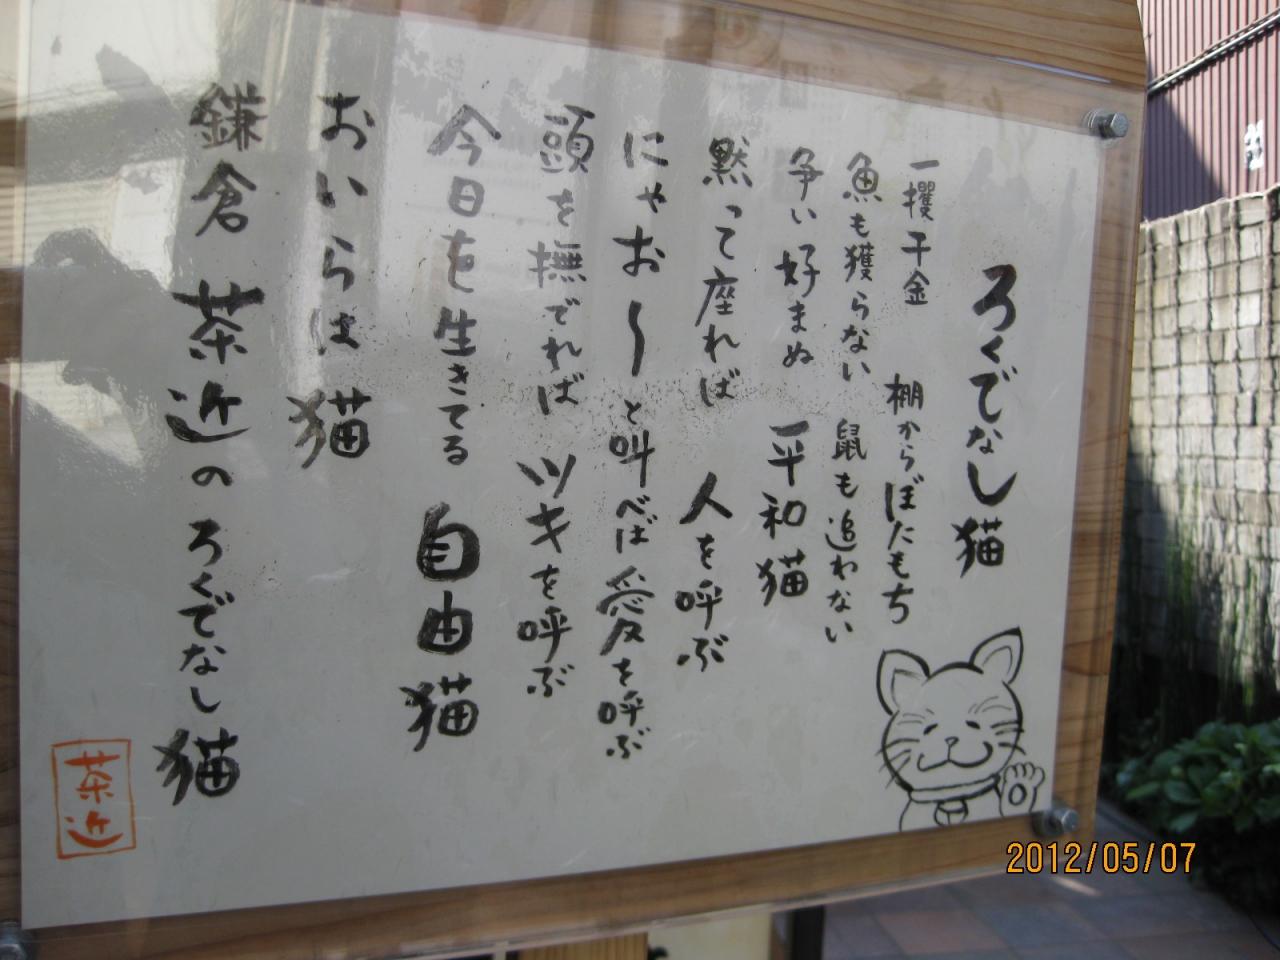 ろくでなし猫
一攫千金 棚からぼたもち
魚も獲らない 鼠も追わない
争い好まぬ 平和猫
黙って座れば 人を呼ぶ
にゃお〜と叫べば愛を呼ぶ
頭を撫でれば ツキを呼ぶ
今日を生きてる 自由猫
おいらは 猫
鎌倉 茶近のろくでなし猫
茶近
2012/05/07